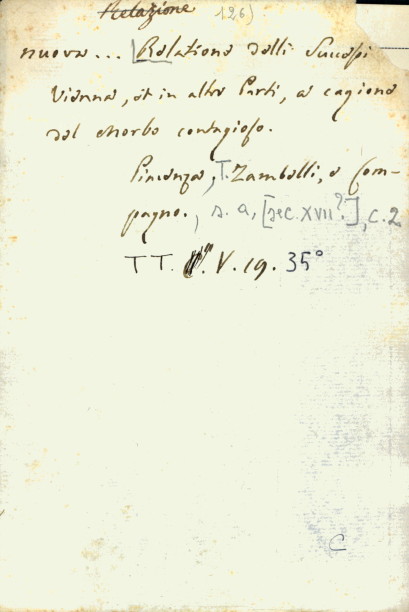 Relazione 126)
nuova... [Relatione delli Succesi
Vienna, et in altre Parti, a cagione
del Morbo contagioso.
Piacenza, T. Zambelli, e Com-
pagno., s. a. [sec. XVII?], c. 2
TT. V. 19. 35°
C